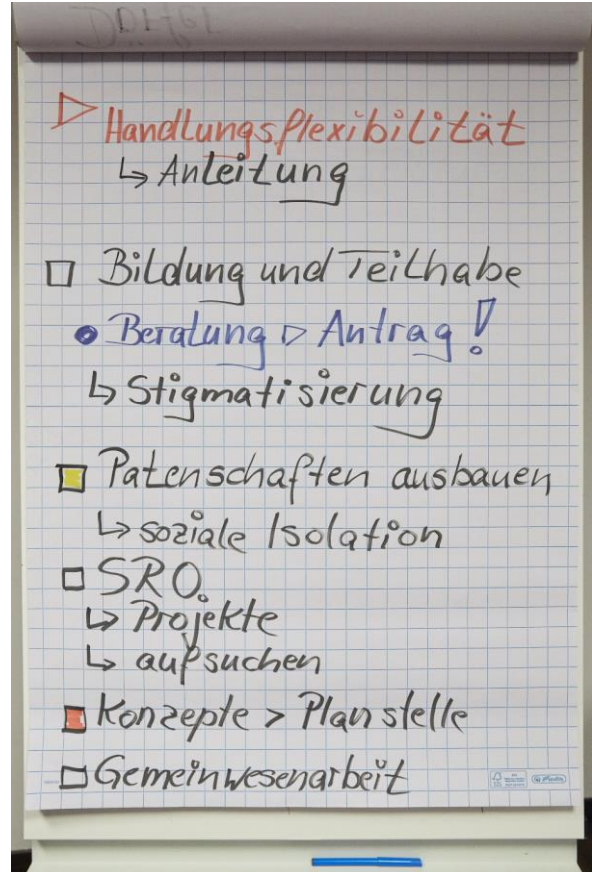 ▷ Handlungsflexibilität
↳ Anleitung
□ Bildung und Teilhabe
• Beratung ▷ Antrag!
↳ Stigmatisierung
□ Patenschaften ausbauen
↳ soziale Isolation
□ SRO.
↳ Projekte
↳ aufsuchen
□ Konzepte > Planstelle
□ Gemeinwesenarbeit